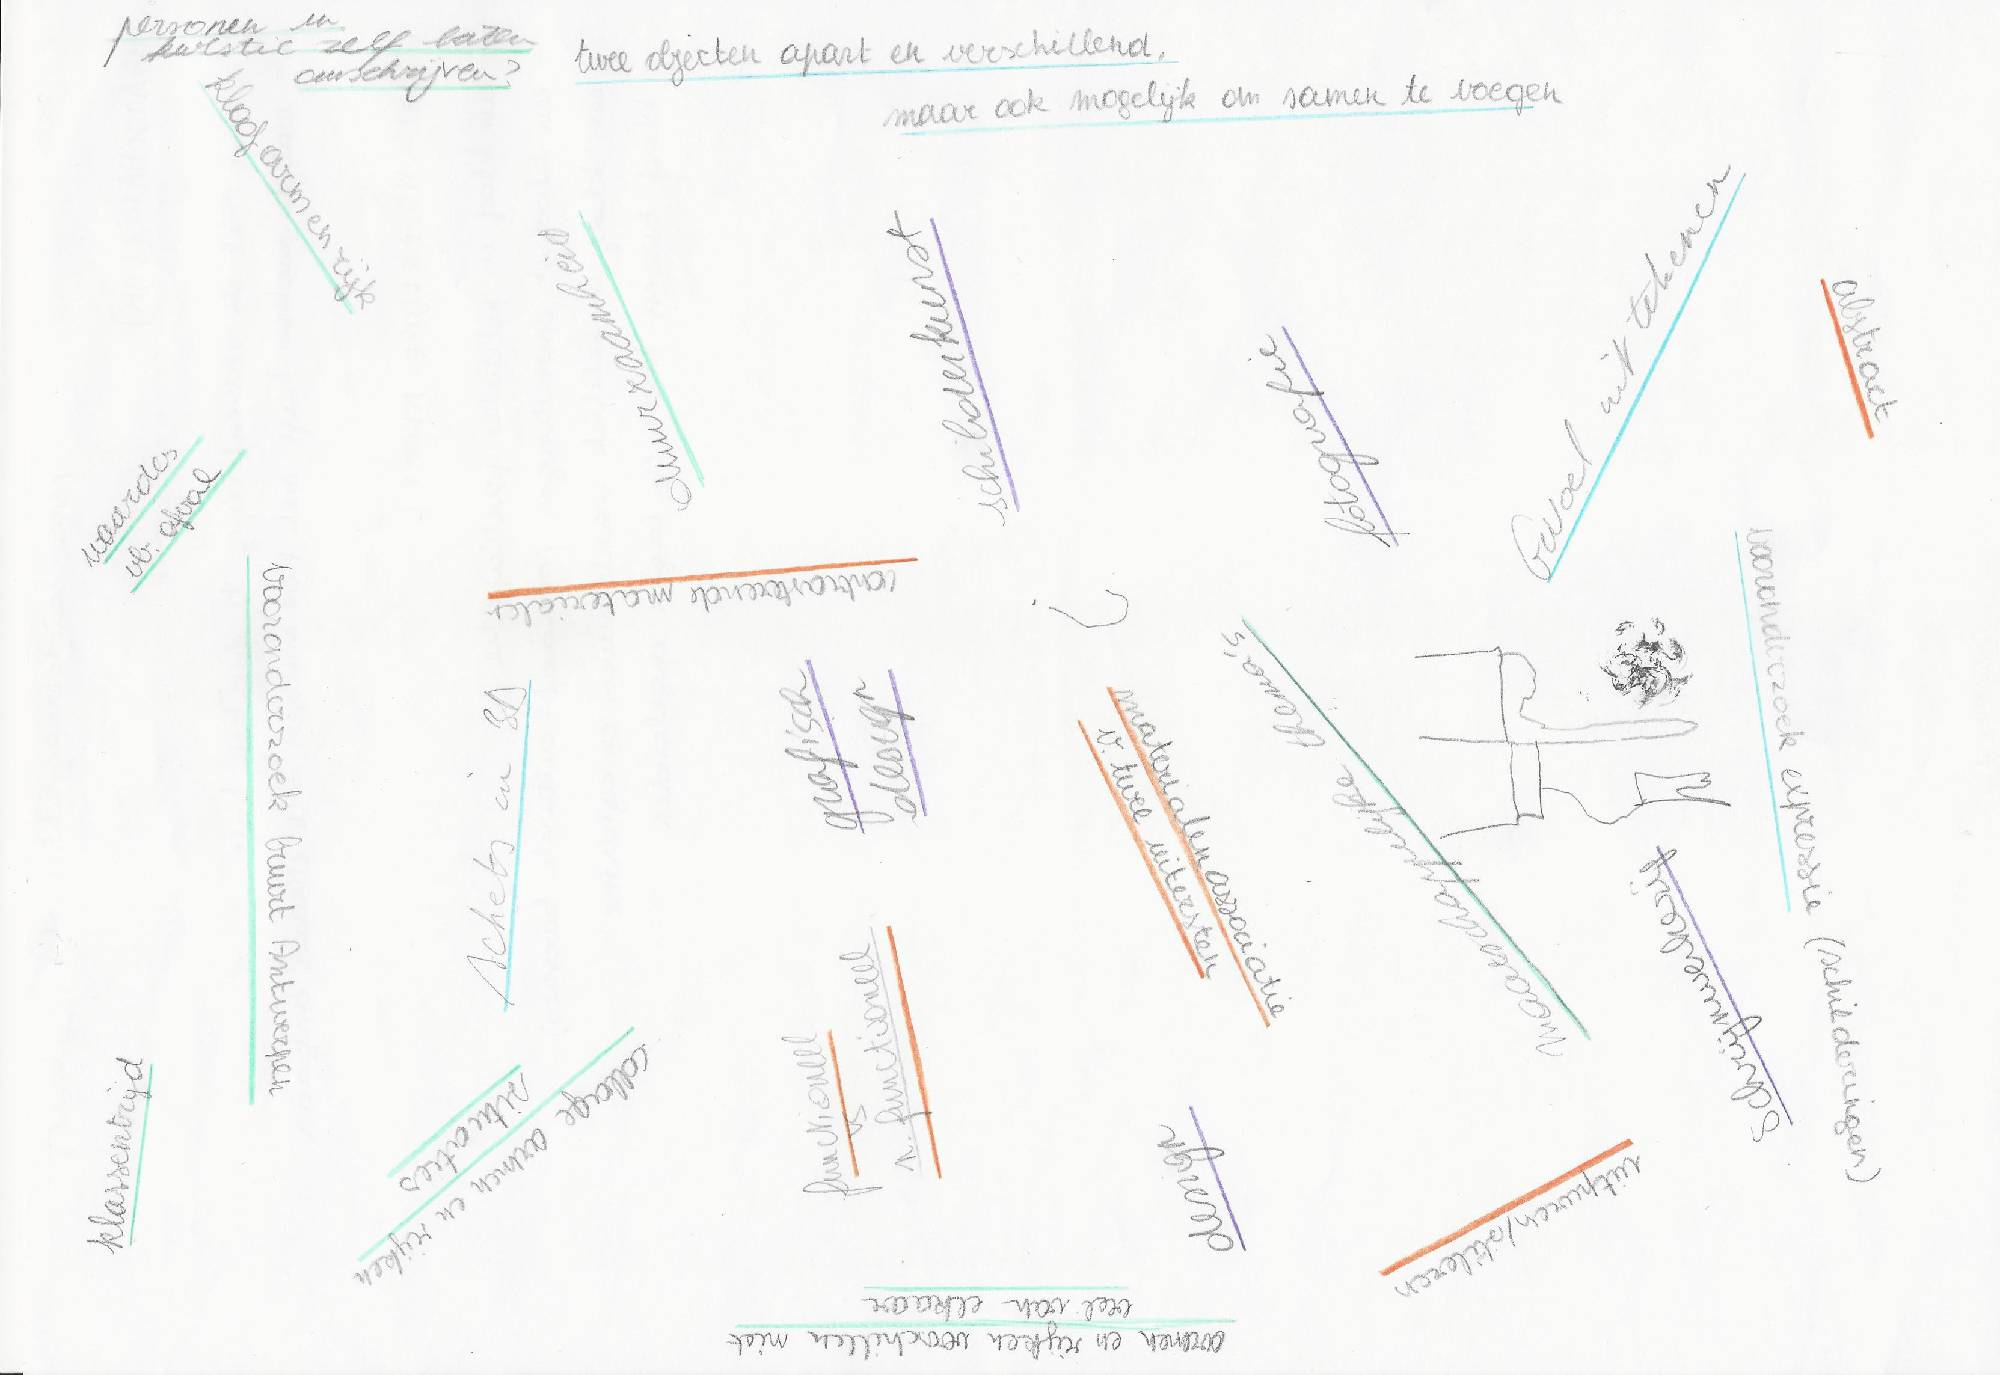 personen in
zelf laten
omschrijven?
twee objecten apart en verschillend,
maar ook mogelijk om samen te voegen
kloof arm en rijk
duurzaamheid
schilderkunst
fotografie
Gevoel uit tekenen
abstract
waardes
vb. afval
contrasterende materialen
vooronderzoek buurt Antwerpen
schets in 3D
grafisch
design
?
materialenassociatie
is twee uitersten
maatschappelijke thema's
vooronderzoek expressie (schilderingen)
Schrijnwerkerij
klassentrijd
collage armen en rijken
situaties
functioneel
vs
n. functioneel
design
uitpuren/stileren
armen en rijken verschillen niet
veel van elkaar